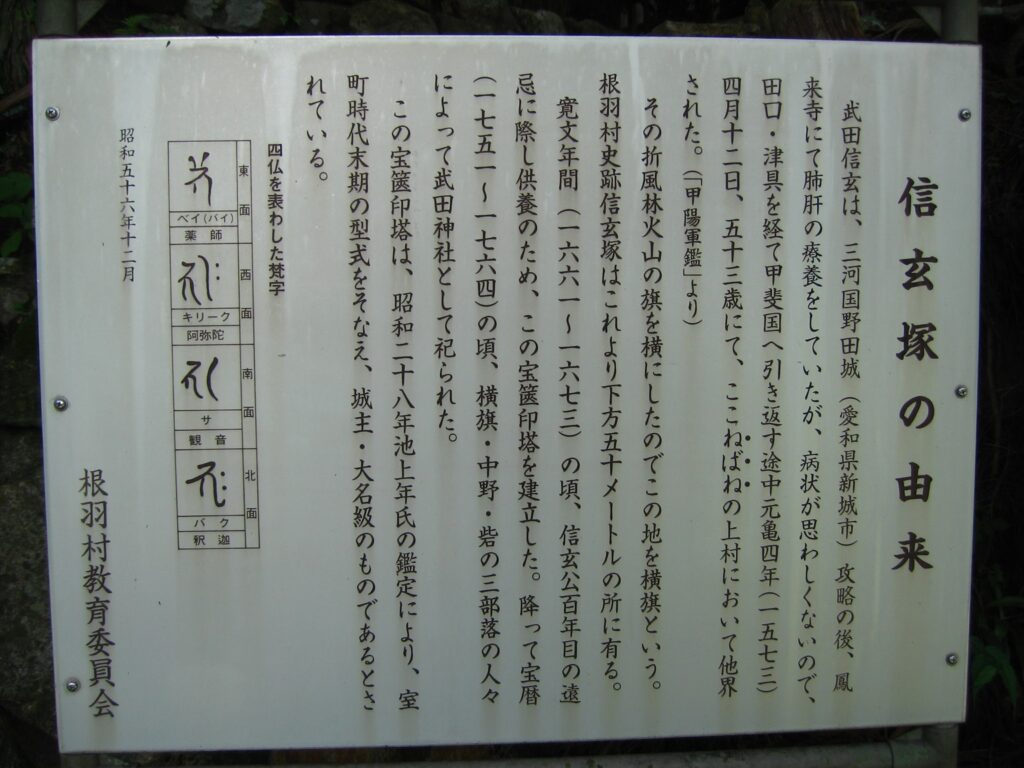 信玄塚の由来
武田信玄は、三河国野田城（愛知県新城市）攻略の後、鳳
来寺にて肺肝の療養をしていたが、病状が思わしくないので、
田口・津具を経て甲斐国へ引き返す途中元亀四年（一五七三）
四月十二日、五十三歳にて、ここねばねの上村において他界
された。（「甲陽軍鑑」より）
その折風林火山の旗を横にしたのでこの地を横旗という。
根羽村史跡信玄塚はこれより下方五十メートルの所に有る。
寛文年間（一六六一～一六七三）の頃、信玄公百年目の遠
忌に際し供養のため、この宝篋印塔を建立した。降って宝暦
（一七五一～一七六四）の頃、横旗・中野・砦の三部落の人々
によって武田神社として祀られた。
この宝篋印塔は、昭和二十八年池上年氏の鑑定により、室
町時代末期の型式をそなえ、城主・大名級のものであるとさ
れている。
四仏を表わした梵字
東面
ベイ（バイ）
薬師
西面
キリーク
阿弥陀
南面
サ
観音
北面
バク
釈迦
昭和五十六年十二月
根羽村教育委員会